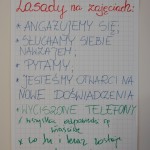 Zasady na zajęciach:
* ANGAŻUJEMY SIĘ,
* SŁUCHAMY SIEBIE
NAWZAJEM,
* PYTAMY,
* JESTEŚMY OTWARCI NA
NOWE DOŚWIADCZENIA
* WYCISZONE TELEFONY
* wszystkie odpowiedzi są
* co tu - teraz, zostaje